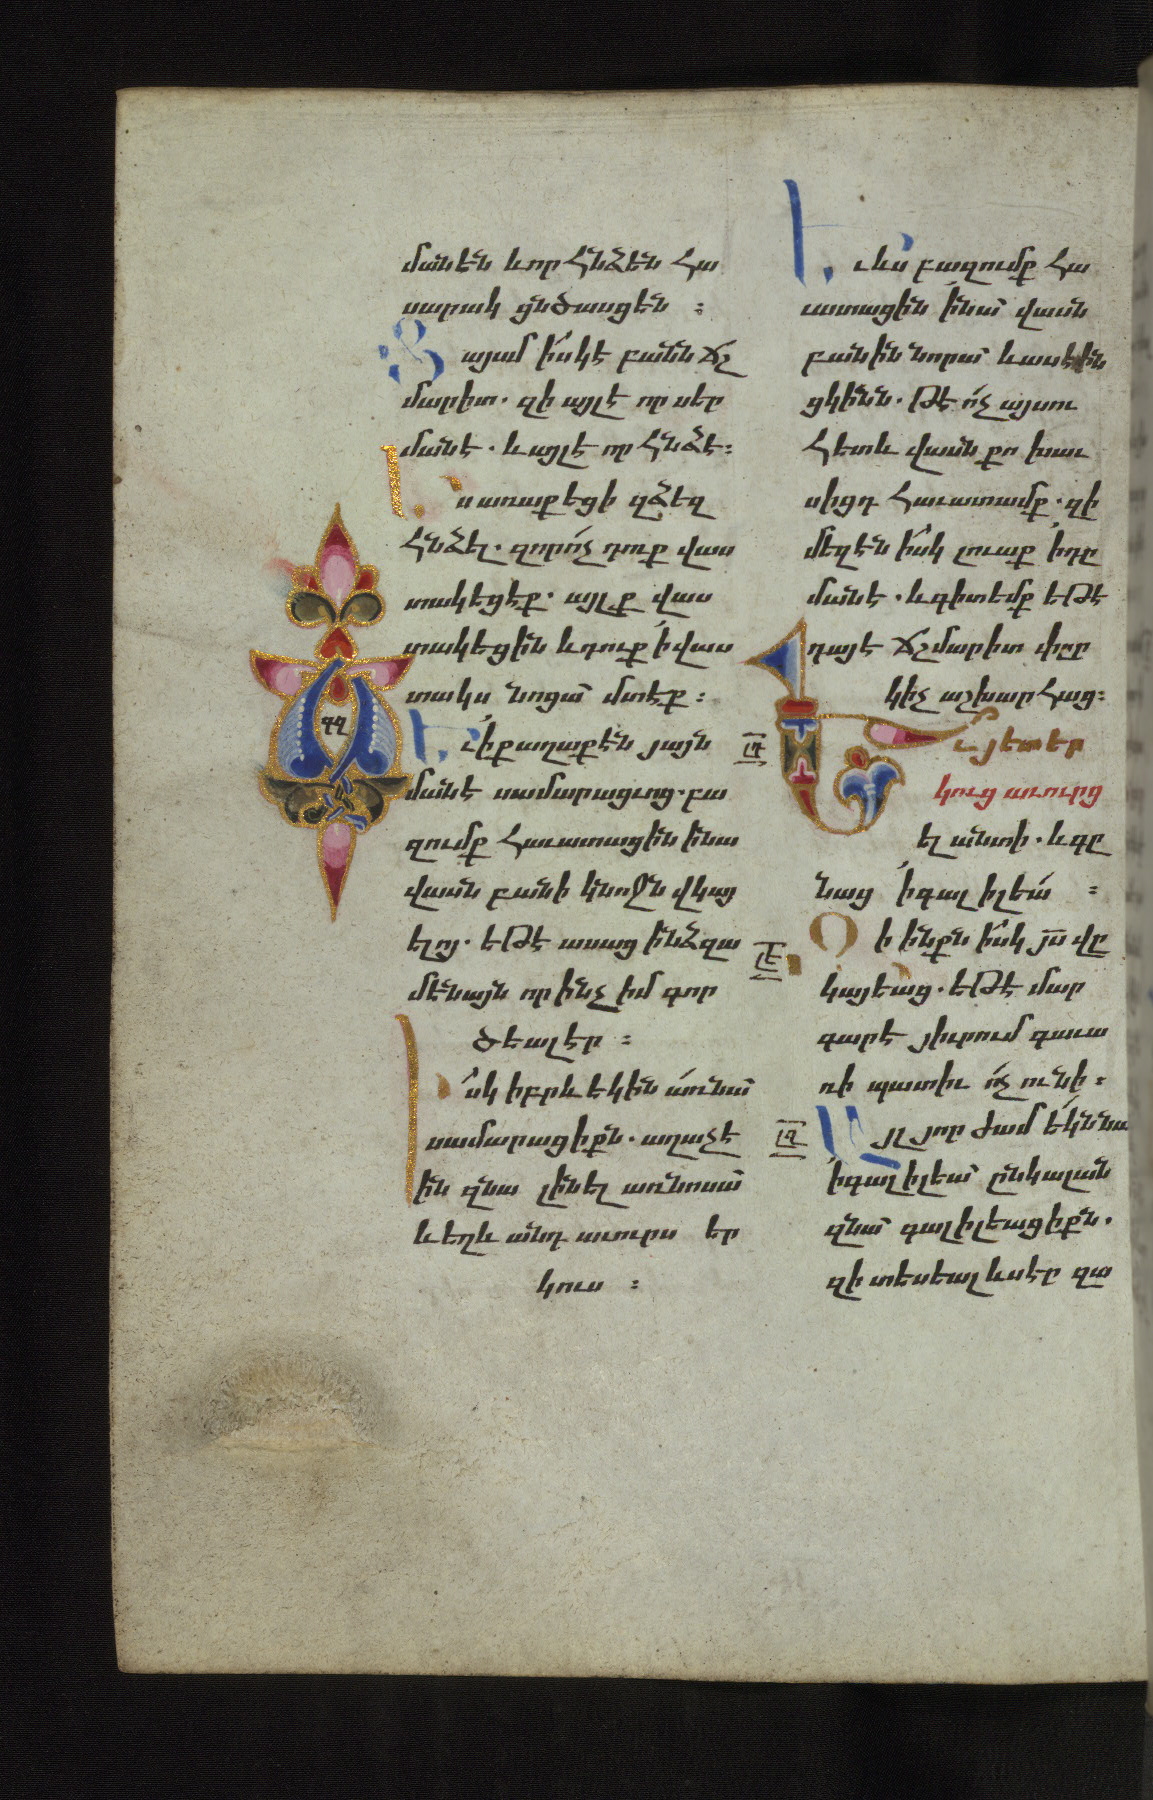 մանեն և որ հնձեն հա
սարակ ցնծասցեն ։
Յայսմ ի՛սկ է բանն ճշ
մարիտ. զի այլ է որ սեր
մանէ. և այլ է որ հնձէ։
Ես առաքեցի զձեզ
հնձել. զոր ո՛չ դուք վաս
տակեցէք. այլք վաս
տակեցին և դուք ի վաս
տակս նոցա մտէք ։
Եւ ի քաղաքէն յայն
մանէ սամարացւոց. բա
զումք հաւատացին ի նա
վասն բանի կնոջն վկայ
ելոյ. եթէ ասաց ինձ զա
մենայն որ ինչ իմ գոր
ծեալ էր ։
Իսկ իբրև եկին առ նա
սամարացիքն. աղաչէ
ին զնա լինել առ նոսա
և եղև անդ աւուրս եր
կուս ։
զզ
Եւ ևս բազումք հա
ւատացին ի նա վասն
բանին նորա և ասէին
ցկինն. թէ ո՛չ այսու
հետև վասն քո խաւ
սիցդ հաւատամք. զի
մեզէն ի՛սկ լուաք ի դը
մանէ. և գիտեմք եթէ
դա է ճշմարիտ փըր
կիչ աշխարհաց։
լդ
Եւ յետ եր
կուց աւուրց
ել անտի. և գը
նաց ի գալիլեա ։
լե
Զի ինքն ի՛սկ յս վը
կայեաց. եթէ մար
գարէ յիւրում գաւա
ռի պատիւ ո՛չ ունի ։
լզ
Այլ յորժամ եկն նա
ի գալիլեա ընկալան
զնա գալիլեացիքն.
զի տեսեալ ևս էր զա